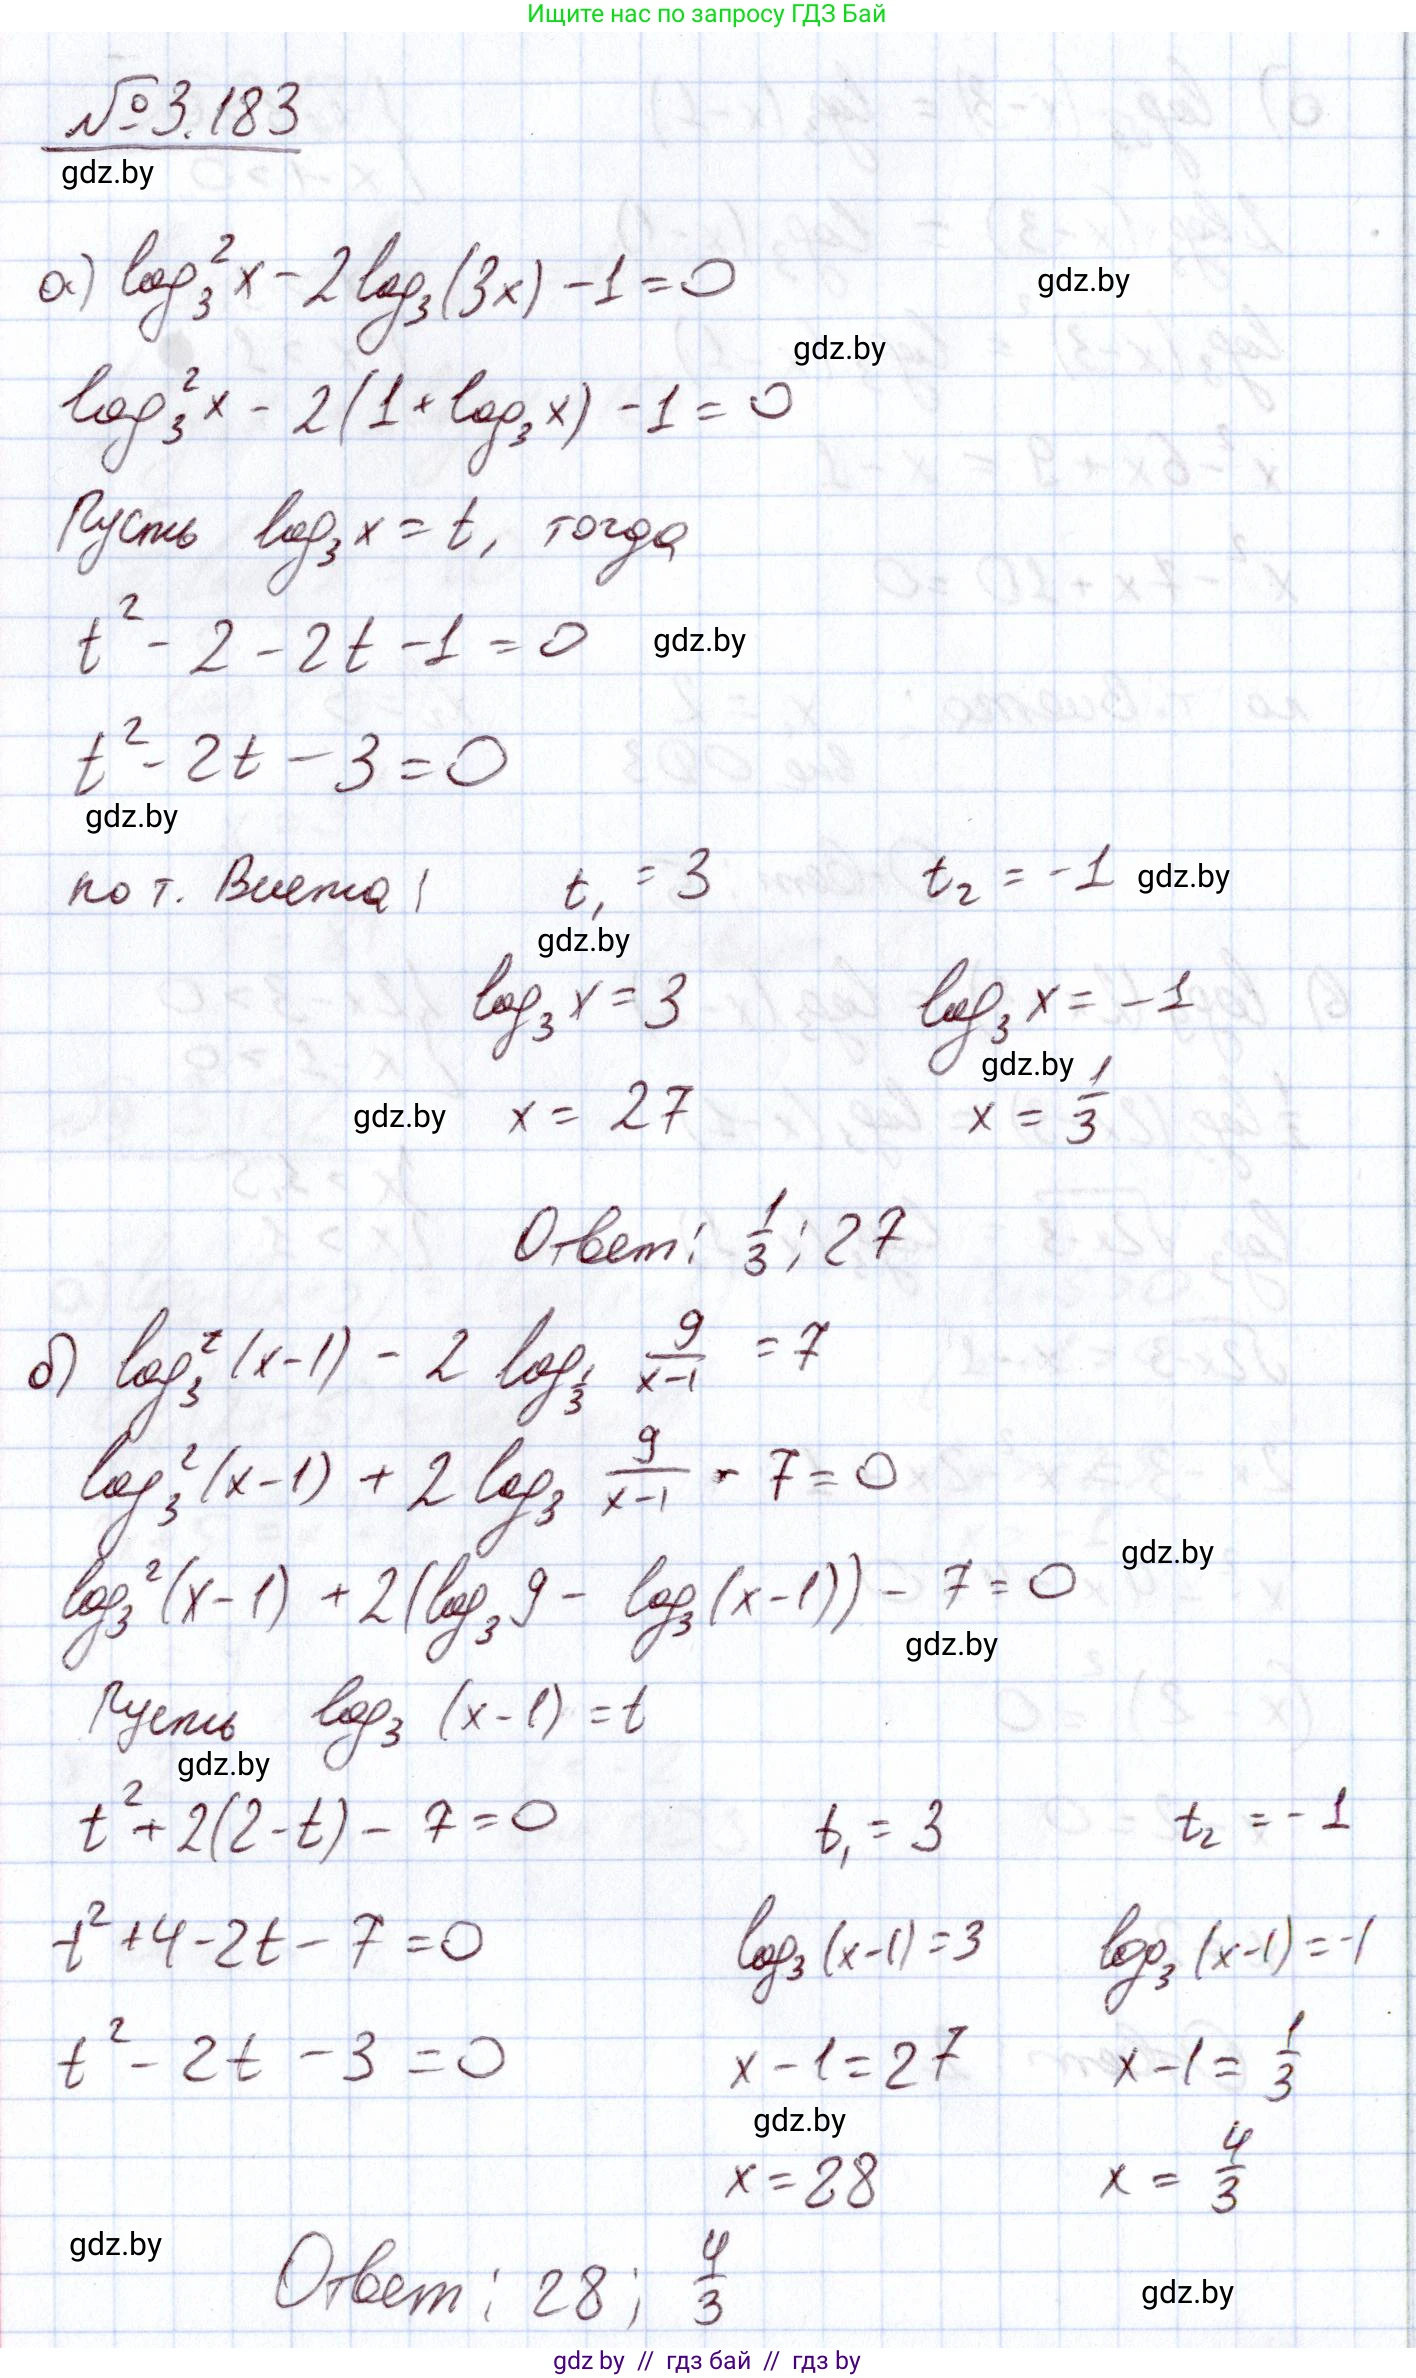 Ищите нас по запросу ГДЗ Бай
№3.183
gdz.by
а) log₃²x - 2log₃(3x) - 1 = 0
gdz.by
gdz.by
log₃²x - 2(1 + log₃x) - 1 = 0
Пусть log₃x = t, тогда
t² - 2 - 2t - 1 = 0
gdz.by
t² - 2t - 3 = 0
gdz.by
по т. Виета: t₁ = 3 t₂ = -1
gdz.by
gdz.by
log₃x = 3 log₃x = -1
gdz.by
gdz.by
x = 27 x = 1/3
Ответ: 1/3; 27
б) log₃²(x-1) - 2 log_{1/3} 9/(x-1) = 7
log₃²(x-1) + 2 log₃ 9/(x-1) - 7 = 0
gdz.by
log₃²(x-1) + 2(log₃9 - log₃(x-1)) - 7 = 0
gdz.by
Пусть log₃(x-1) = t
gdz.by
t² + 2(2-t) - 7 = 0 t₁ = 3 t₂ = -1
t² + 4 - 2t - 7 = 0 log₃(x-1) = 3 log₃(x-1) = -1
t² - 2t - 3 = 0 x - 1 = 27 x - 1 = 1/3
gdz.by
x = 28 x = 4/3
gdz.by
Ответ: 28; 4/3
gdz.by
gdz by // гдз бай // гдз by